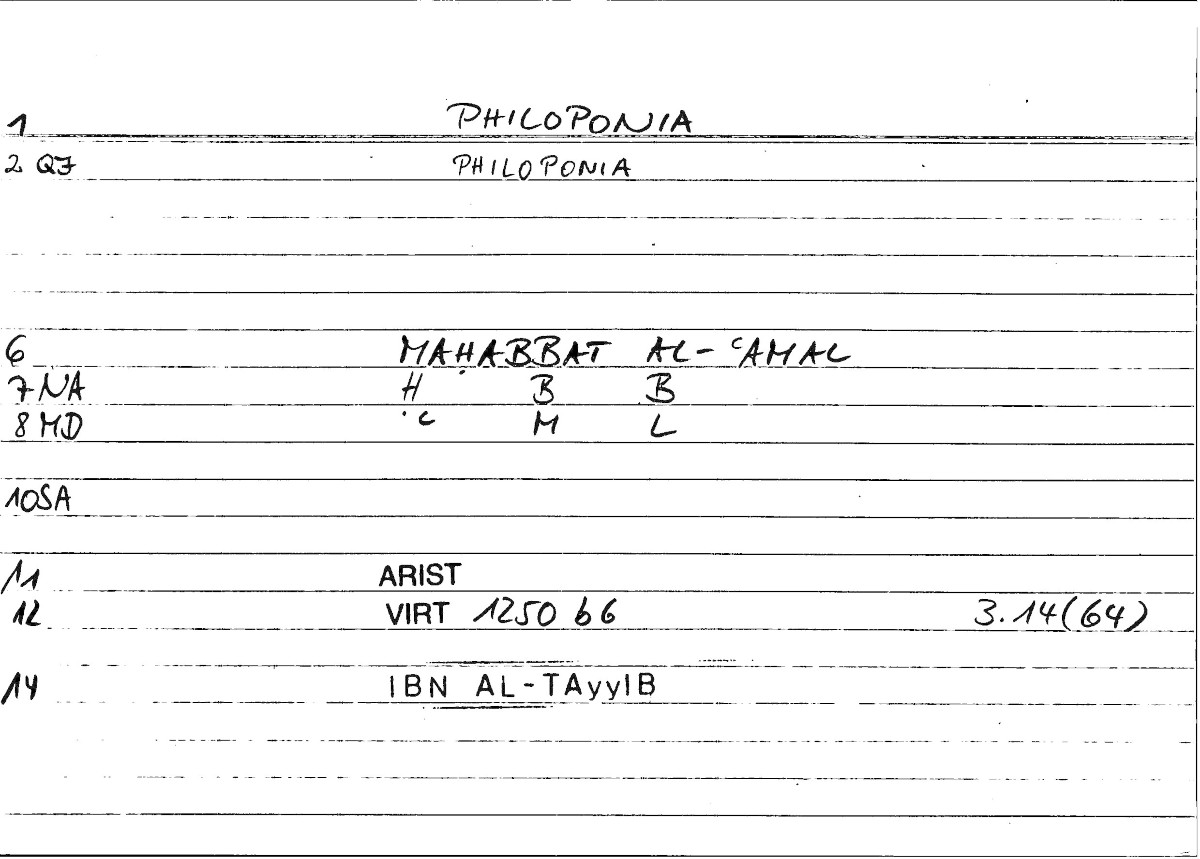 1 PHILOPONIA
2 QF PHILOPONIA
6 MAḤABBAT AL-ʿAMAL
7 NA Ḥ B B
8 MD ʿ M L
10 SA
11 ARIST
12 VIRT 1250 b6 3.14(64)
14 IBN AL-TAyyIB